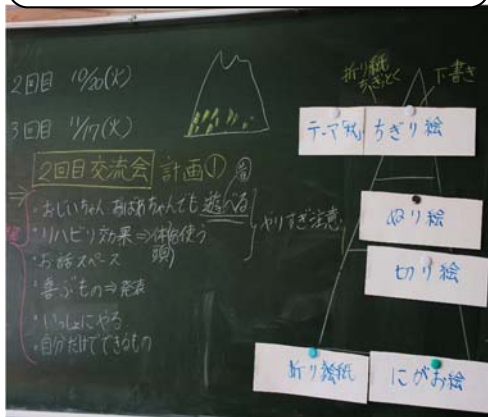 2回目 10/20(火)
3回目 11/17(火)
2回目交流会 計画①
・おじいちゃん・おばあちゃんでも遊べる
・リハビリ効果⇒体を使う
頭
・お話スペース
・喜ぶもの⇒発表
・いっしょにやる
・自分だけでできるもの
やりすぎ注意
折り紙
ちぎっとく
下書き
テーマ「秋」
ちぎり絵
ぬり絵
切り絵
折り絵紙
にがお絵